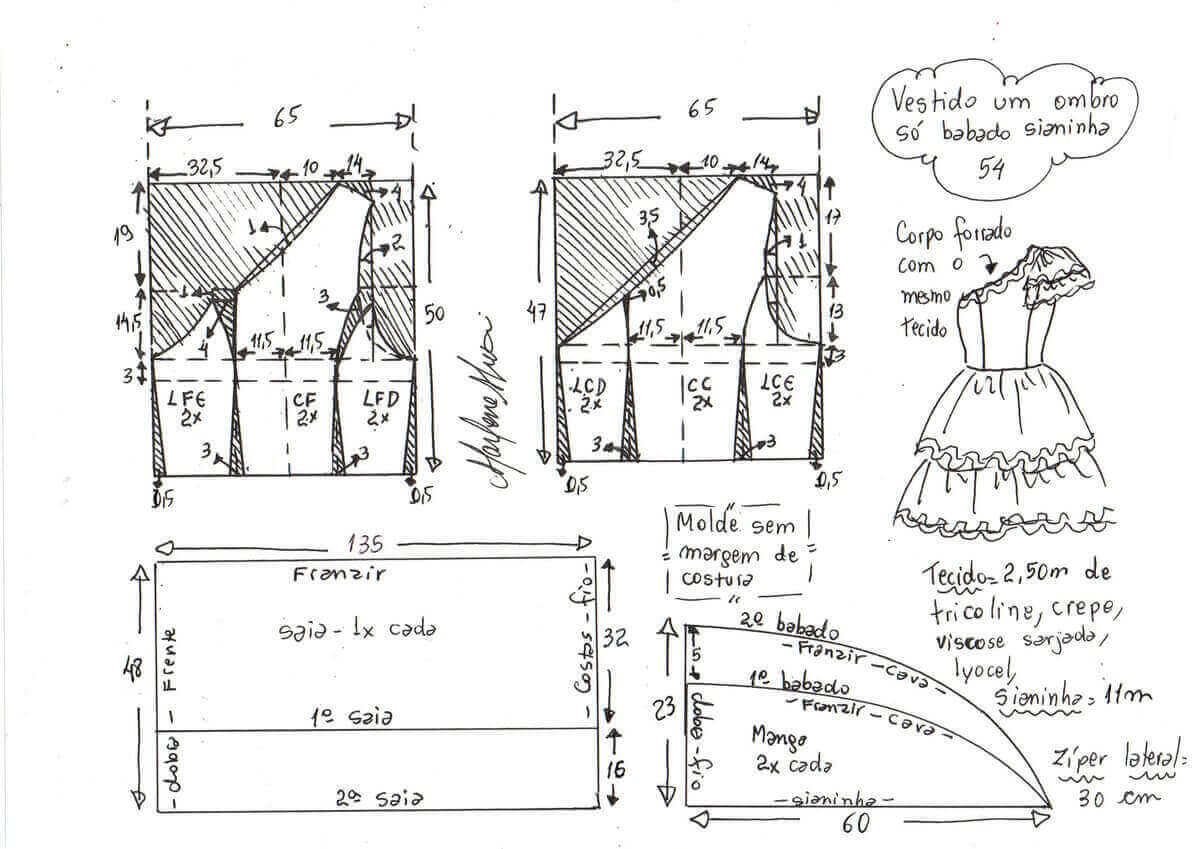 Vestido um ombro
só babado sianinha
54
65
32,5
10
14
4
19
1
2
1
3
14,5
4
11,5
11,5
50
3
LFE
2x
CF
2x
LFD
2x
3
3
0,5
0,5
Marlene Mukai
65
32,5
10
14
4
17
3,5
1
0,5
47
11,5
11,5
13
3
LCD
2x
CC
2x
LCE
2x
3
3
0,5
0,5
Corpo forrado
com o
mesmo
tecido
135
Franzir
saia - 1x cada
48
- dobra - Frente
- Costas - fio -
32
1ª saia
16
2ª saia
Molde sem
margem de
costura
2º babado
- Franzir - Cava -
5
1º babado
- Franzir - Cava -
23
dobra - fio
Manga
2x cada
- sianinha -
60
Tecido = 2,50m de
tricoline, crepe,
viscose sarjada,
lyocel,
sianinha = 11m
Zíper lateral =
30 cm